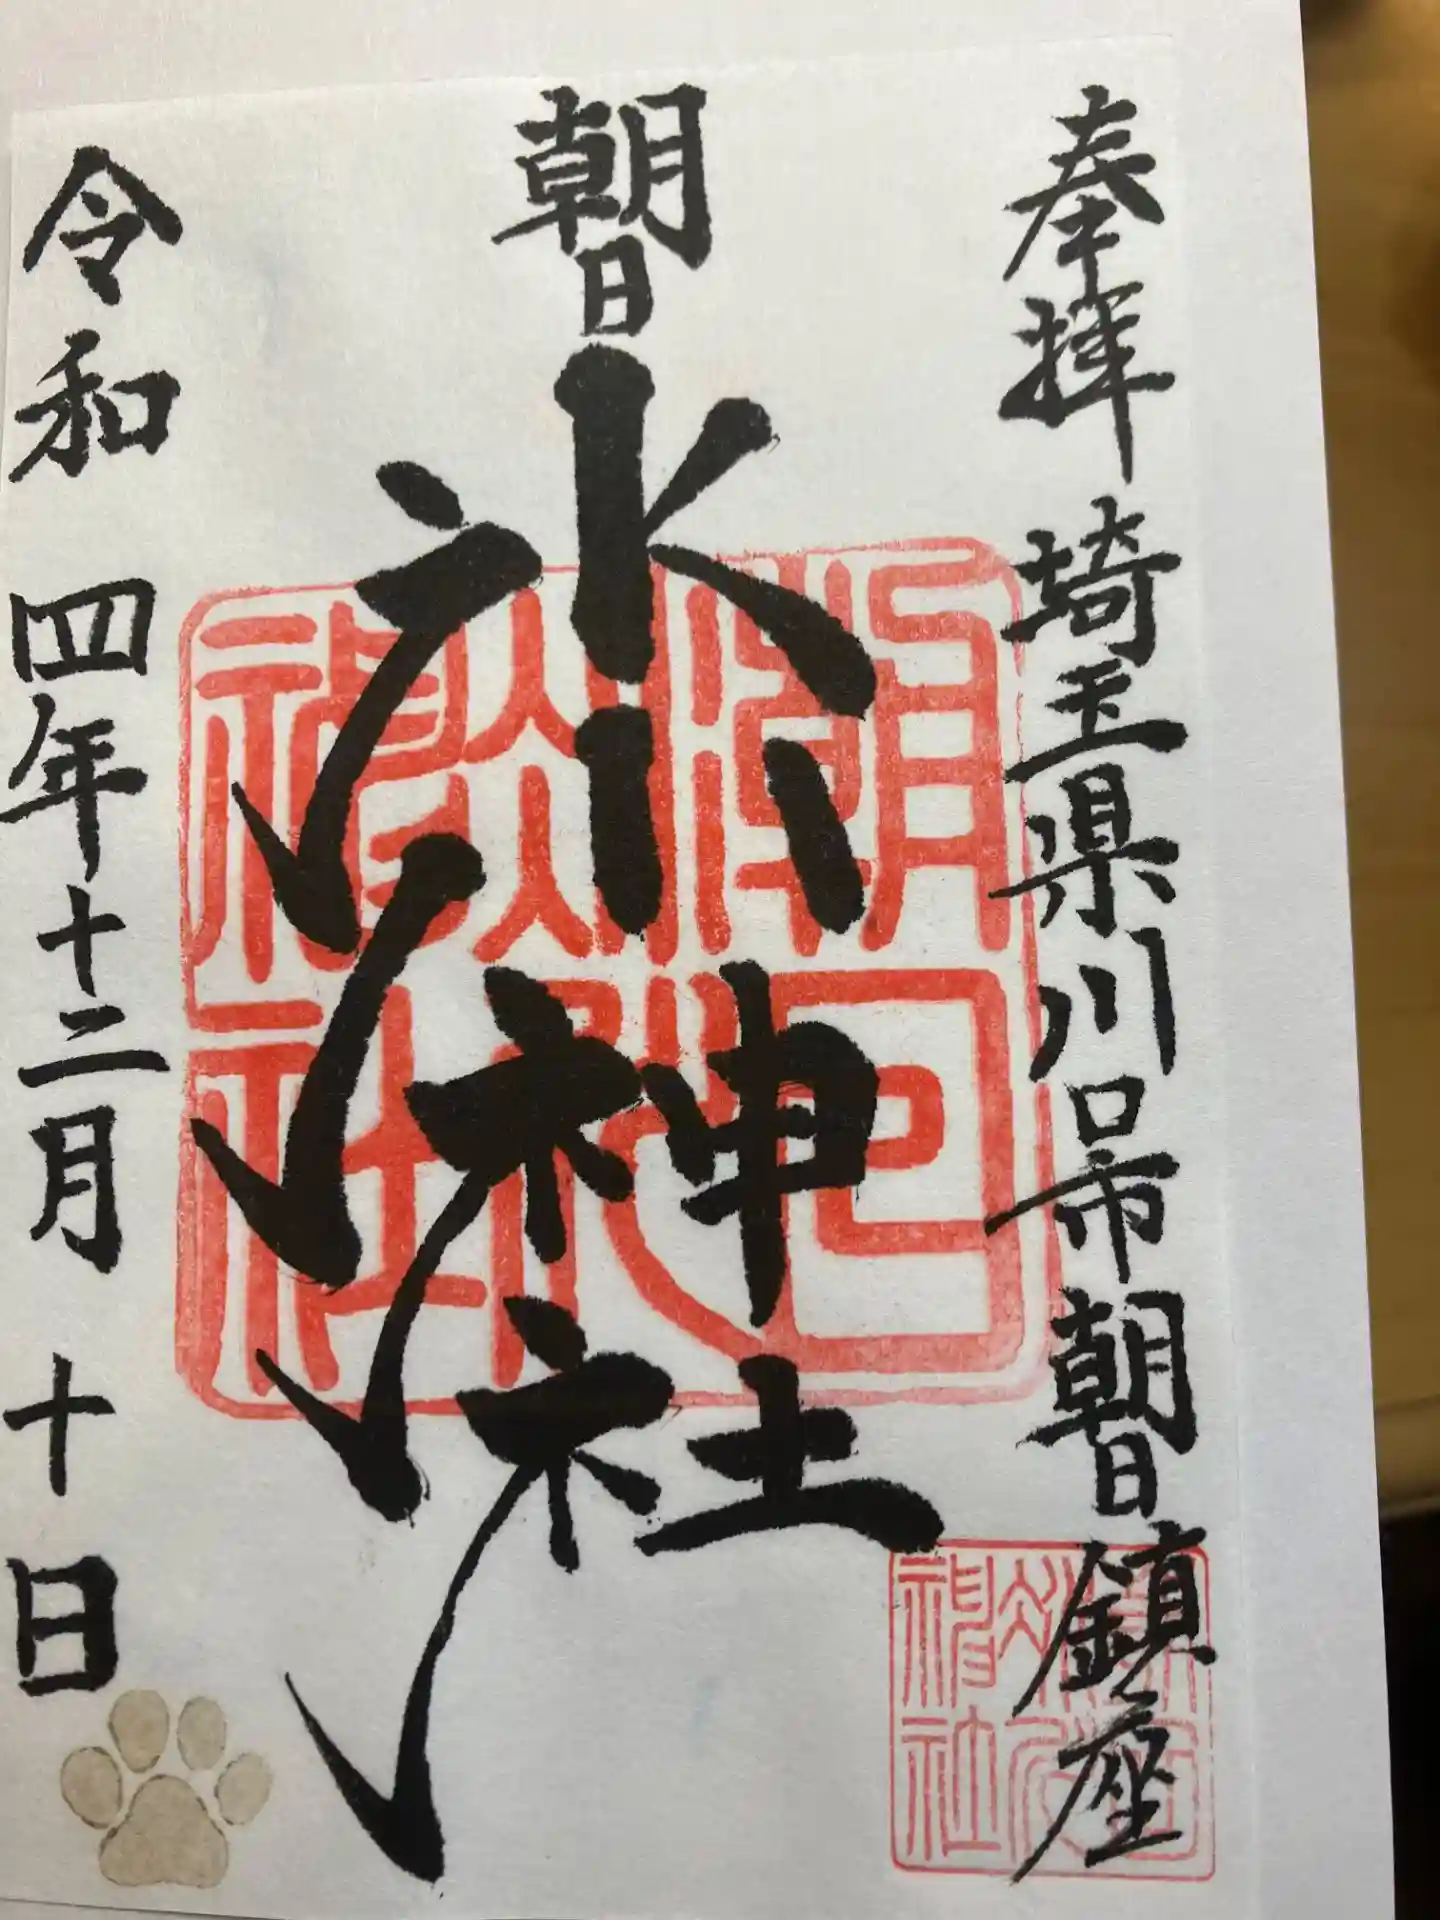 奉拝 埼玉県川口市朝日鎮座
朝日氷川神社
令和四年十二月十日
朝日氷川神社